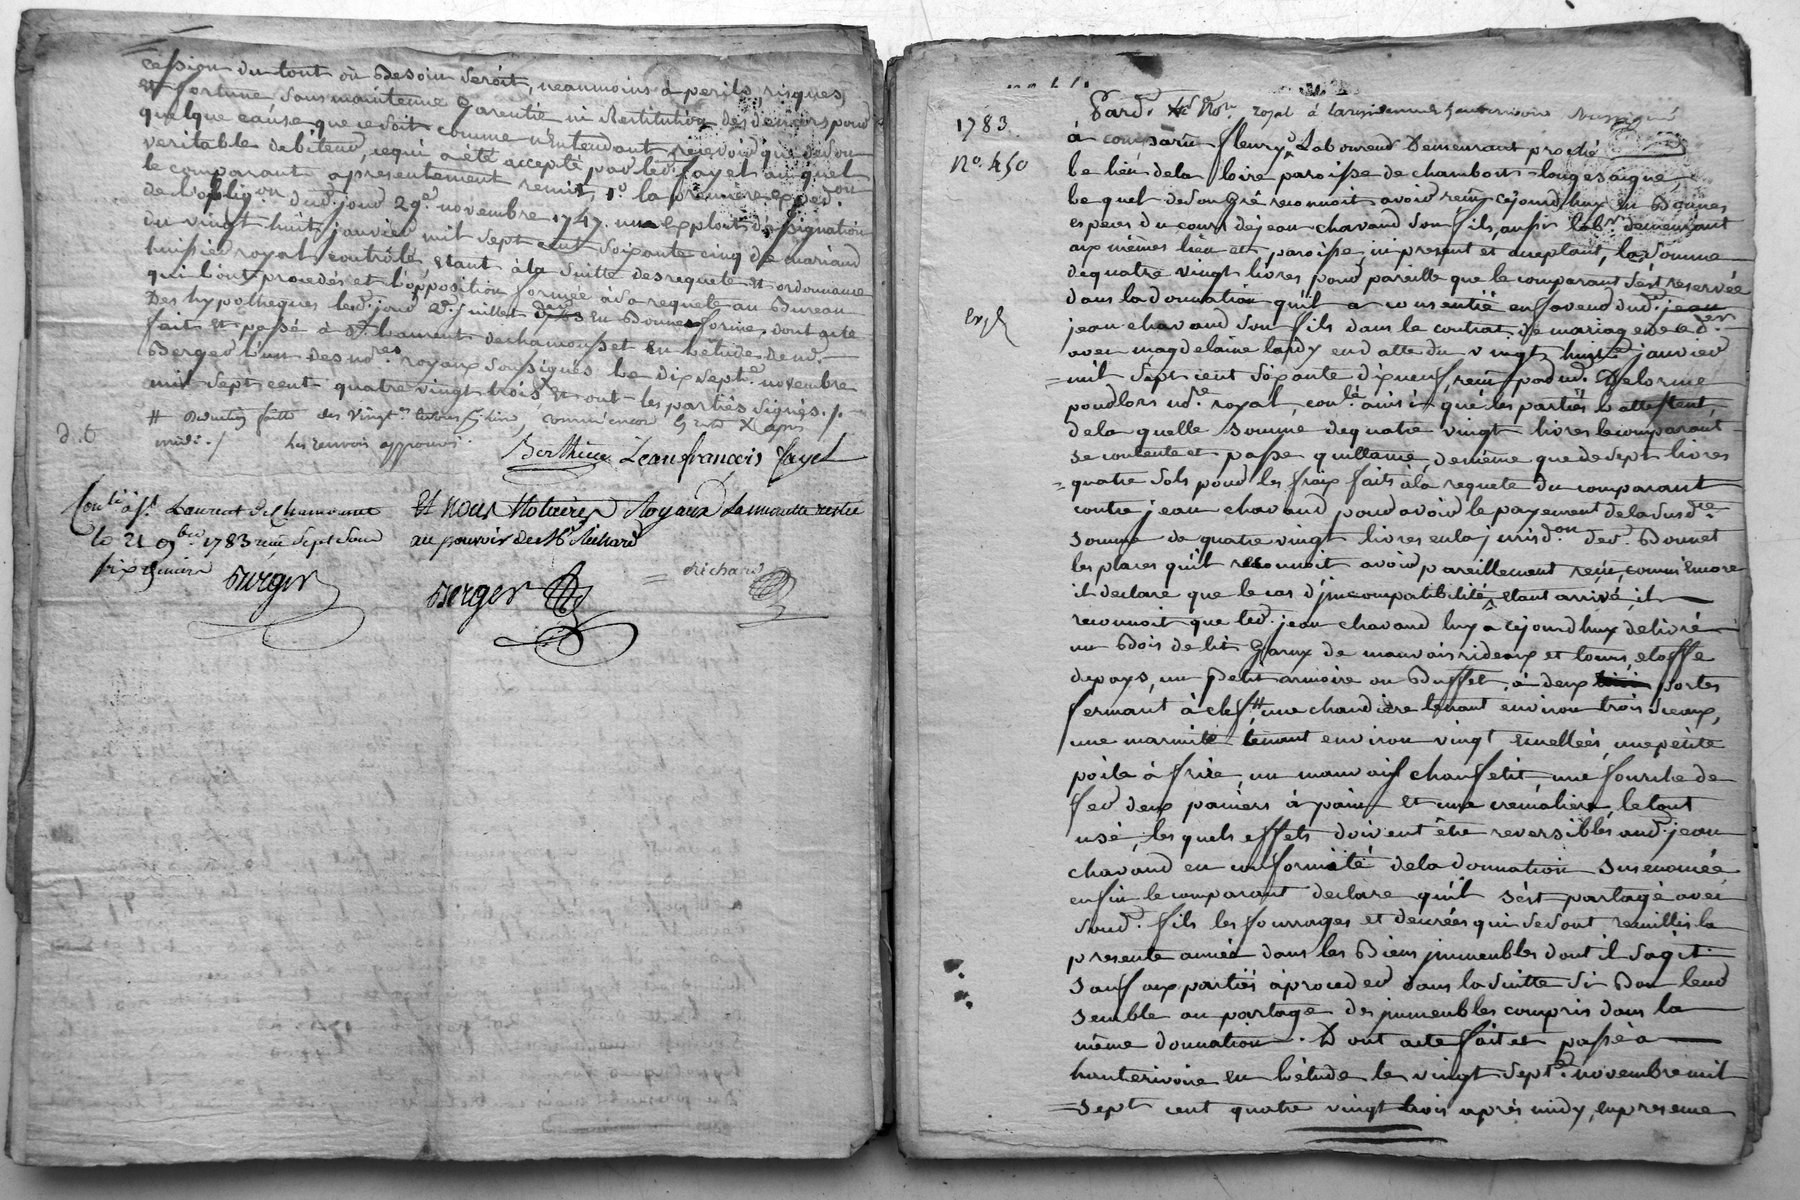 cession du tout où besoin seroit, neanmoins à perils, risques,
et fortune sans maintenue Garentie ni Restitution des deniers pour
quelque cause que ce soit comme n'Entendant recevoir que de son
veritable debiteur, ce qui a été accepté par led. fayet auquel
le comparant a presentement remis, 1º la premiere exped.on
de l'oblig.on dud. jour 29e novembre 1747. un Exploit d'assignation
du vingt huit janvier mil sept cent soixante cinq de mariand
huissier royal controlé, etant à la suitte des requete et ordonnance
qui l'ont procedés et l'opposition formée à sa requete au Bureau
Des hypotheques led. jour 2e. juillet en Bonne forme, dont acte
fait et passé à St. Laurent dechamousset en l'étude de md.
Berger l'un des no.res royaux soussignés le dix sept.e novembre
mil sept cent quatre vingt trois et ont les parties signés ./.
midi ./ les renvois approuvés
d. 6
Berthieu Jean françois fayet
Con.lé à St. Laurent De Chamousset Et nous Notaires Royaux La minutte restée
le 21 9.bre 1783 reçu sept sous au pouvoir de Me Richard
six deniers Berger Berger Richard
Pard. royal à
1783. à comparu fleury Laboureur Demeurant proche
No. 450 le lieu de la loire paroisse de chambost-longesaigne,
Lequel de son Gré reconnoit avoir reçu cejourdhuy en Bonnes
especes du cours de jean chavand son fils, aussi lab.r demeurant
aux mêmes lieu et paroisse, ici present et acceptant, la somme
de quatre vingt livres, pour pareille que le comparant s'est reservée
dans la donnation qu'il a consentie en faveur dud. jean
Exp. jean chavand son fils dans le contrat de mariage de ce d.er
avec magdelaine lardy en datte du vingt huit janvier
mil sept cent soixante dix neuf, reçu par md. Delorme
pour lors no.re royal, con.lé ainsi que les parties l'attestent,
de la quelle somme de quatre vingt livres le comparant
se contente et passe quittance, de même que de sept livres
quatre sols pour les fraix faits à la requete du comparant
contre jean chavand pour avoir le payement de la susd.e
somme de quatre vingt livres en la jurisd.on de Bonnet
les places qu'il reconnoit avoir pareillement reçu, comme encore
il declare que le cas d'jncompatibilité etant arrivé, il
reconnoit que led. jean chavand luy a cejourdhuy delivré
un Bois de lit Garny de mauvais rideaux et tours, etoffe
de pays, un petit armoire ou Buffet, à deux portes
fermant à clef, # une chaudiere tenant environ trois sceaux,
une marmite tenant environ vingt ecuellées, une petite
poile à frire, un mauvais chaufelit une fourche de
fer deux paniers à pain et une cremaliere, le tout
usé, les quels effets doivent être reversibles aud. jean
chavand en conformité de la donnation susenoncée
enfin le comparant declare qu'il s'est partagé avec
sond. fils les fourrages et denrées qui se sont recuillis la
presente année dans les Biens jmmeubles dont il s'agit.
sauf aux parties à proceder dans la suitte si Bon leur
semble au partage des jmmeubles compris dans la
même donnation. Dont acte fait et passé à
hauterivoire en l'étude le vingt sept.e novembre mil
sept cent quatre vingt trois après midy, en presence